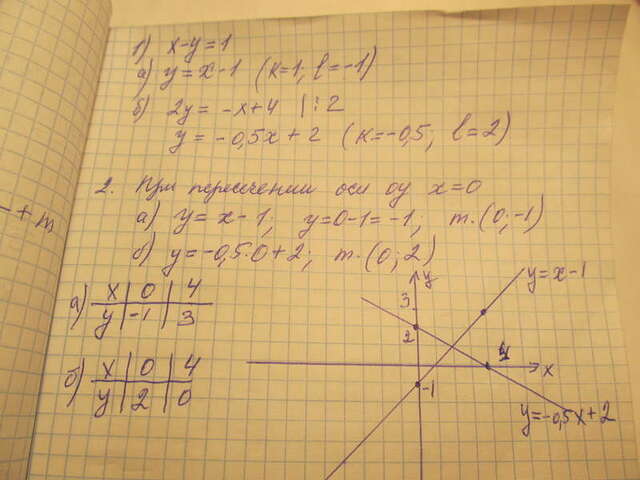 1) x-y=1
а) y=x-1 (k=1, l=-1)
б) 2y = -x+4 |:2
y = -0,5x+2 (k=-0,5; l=2)
2. При пересечении оси oy x=0
а) y=x-1; y=0-1=-1; т.(0;-1)
б) y=-0,5·0+2; т.(0;2)
а) x | 0 | 4
y | -1 | 3
б) x | 0 | 4
y | 2 | 0
y
y=x-1
3
2
4
x
-1
y=-0,5x+2
-+m